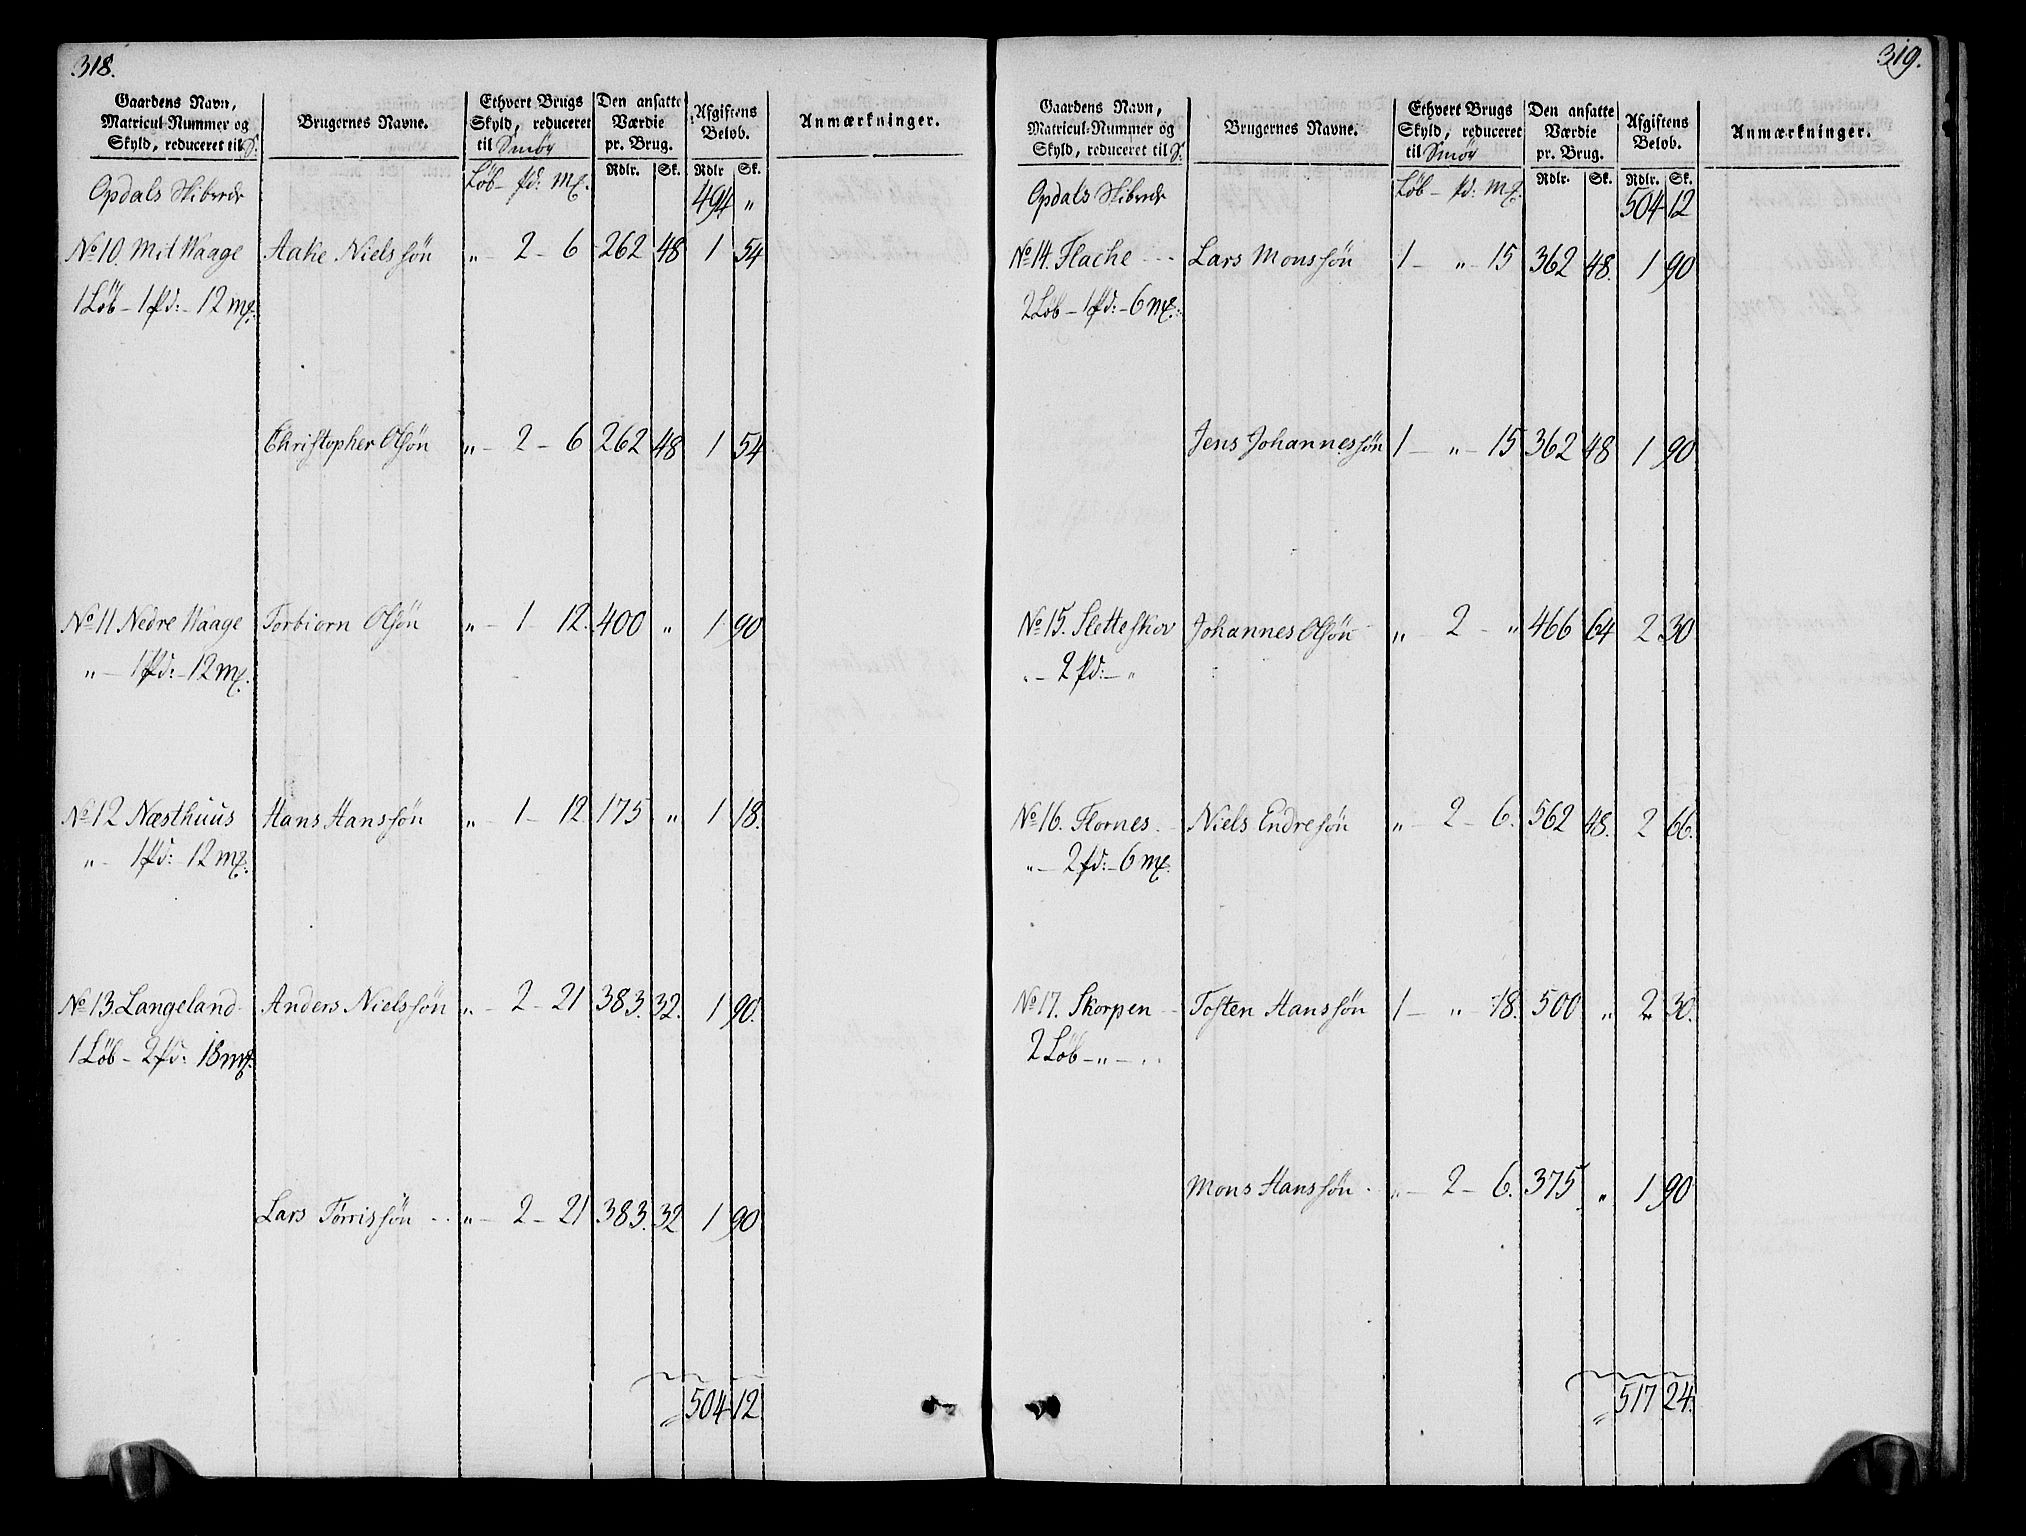 318.
Gaardens Navn, Matricul-Nummer og Skyld, reduceret til S.
Brugernes Navne.
Ethvert Brugs Skyld, reduceret til Smør
Den ansatte Værdie pr. Brug.
Afgiftens Beløb.
Anmærkninger.
Rdlr. Sk. Rdlr Sk.
Opdals Skibrede Løb - pd: mk. 494 „
No 10. Mit Waage Aake Nielssøn „ - 2 - 6 262 48 1 54
1 Løb - 1 pd: - 12 mk.
Christopher Olsøn „ - 2 - 6 262 48 1 54
No 11 Nedre Waage Torbiorn Olsøn „ - 1 - 12. 400 „ 1 90
„ - 1 pd: - 12 mk.
No 12 Næsthuus Hans Hanssøn „ - 1 - 12 175 „ 1 18.
„ - 1 pd: 12 mk.
No 13. Langeland Anders Nielssøn „ - 2 - 21 383. 32. 1 90.
1 Løb - 2 pd: 18 mk.
Lars Tørrissøn „ - 2 - 21 383. 32 1 90
504 12.
319.
Gaardens Navn, Matricul-Nummer og Skyld, reduceret til S.
Brugernes Navne.
Ethvert Brugs Skyld, reduceret til Smør
Den ansatte Værdie pr. Brug.
Afgiftens Beløb.
Anmærkninger.
Rdlr. Sk. Rdlr. Sk.
Opdals Skibrede Løb - pd: mk. 504 12
No 14. Flache Lars Monssøn 1 - „ - 15 362 48. 1 90
2 Løb - 1 pd: - 6 mk.
Jens Johannessøn 1 - „ - 15 362 48 1 90
No 15. Sletteskov Johannes Olsøn „ - 2 - „ 466 64 2 30
„ - 2 pd: - „
No 16. Flornes Niels Endresøn „ - 2 - 6. 562 48. 2 66.
„ - 2 pd: - 6 mk.
No 17. Skorpen Tosten Hanssøn 1 - „ - 18. 500 „ 2 30.
2 Løb - „ - „
Mons Hanssøn „ - 2 - 6. 375 „ 1 90
517 24.